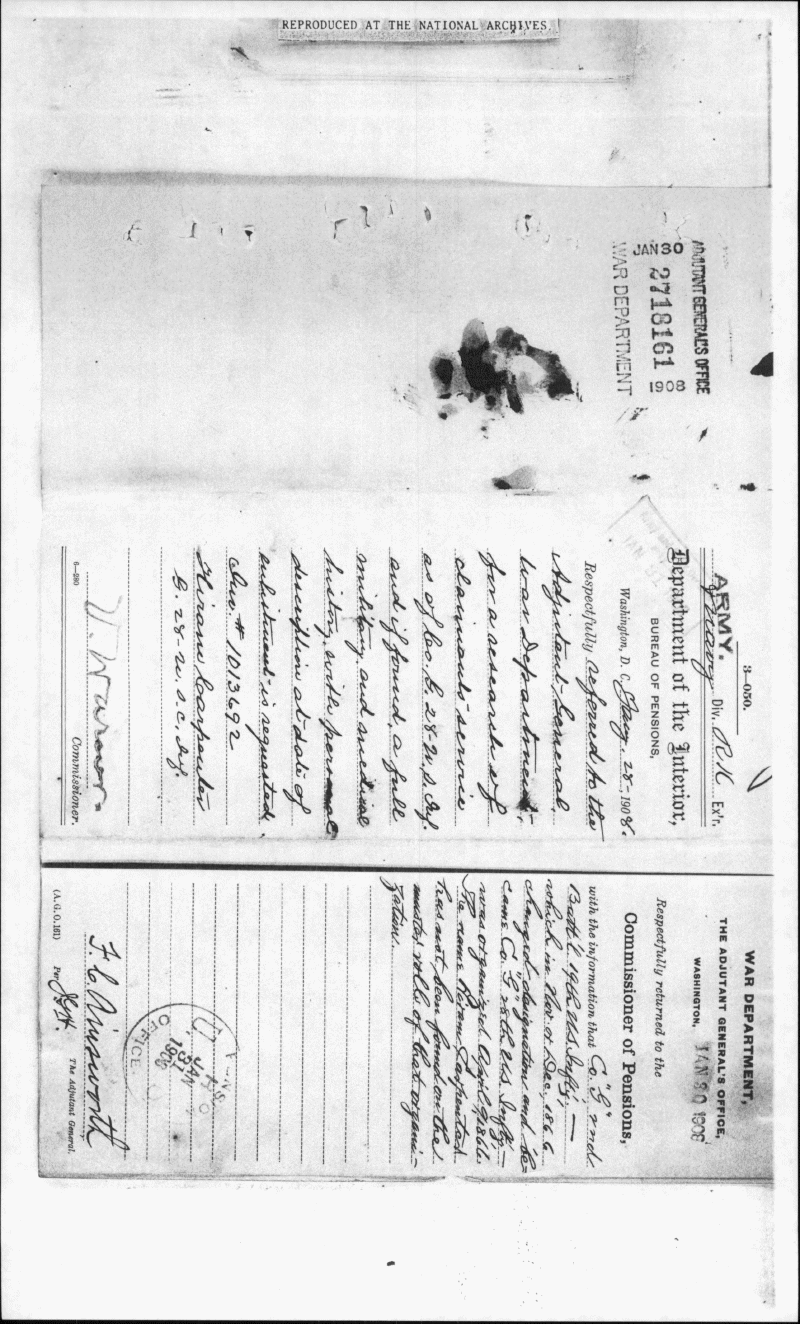 REPRODUCED AT THE NATIONAL ARCHIVES.
ADJUTANT GENERAL'S OFFICE
2718161
JAN 30 1908
WAR DEPARTMENT
3—050.
ARMY.
Navy Div. R.K. Ex'r.
Department of the Interior,
BUREAU OF PENSIONS,
Washington, D. C., Jany. 28-1908.
Respectfully referred to the
Adjutant General,
War Department,-
for a research of
claimants service
as of Co. G. 28-U.S. Inf.
and if found, a full
military and medical
history with personal
description at date of
enlistment is requested.
Inv # 1013692
Hiram Carpenter
G. 28-U.S.C. Inf.
V. Warner.
Commissioner.
6—280
WAR DEPARTMENT,
THE ADJUTANT GENERAL'S OFFICE,
WASHINGTON, JAN 30 1908
Respectfully returned to the
Commissioner of Pensions,
with the information that Co. "G" 2nd
Batt'l. 19th U.S. Inf'ty,—
which in Nov. or Dec, 1866
changed designation and be-
came Co. "G" 28th U.S. Inf'ty—
was organized April 9, 1866
The name Hiram Carpenter
has not been found on the
muster rolls of that organi-
zation.
JAN 31 1908
OFFICE
F. C. Ainsworth
The Adjutant General.
Per
(A. G. O. 161)